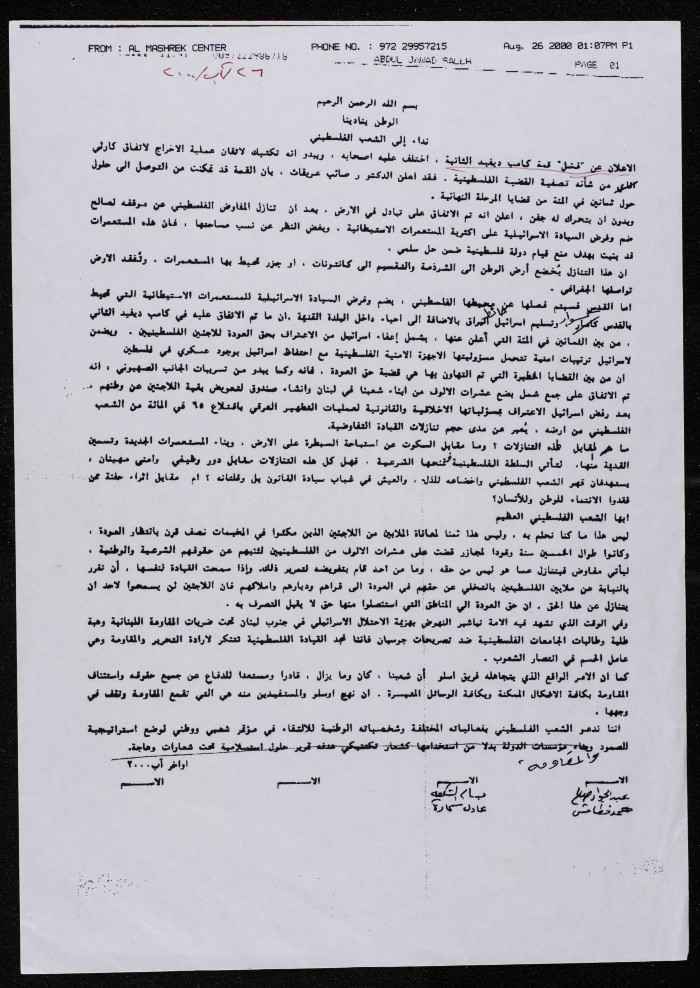 FROM : AL MASHREK CENTER PHONE NO. : 972 29957215 Aug. 26 2000 01:07PM P1
ABDUL JAWAD SALEH PAGE 01
بسم الله الرحمن الرحيم
الوطن ينادينا
نداء إلى الشعب الفلسطيني
الاعلان عن "فشل" قمة كامب ديفيد الثانية ، اختلف عليه اصحابه ، ويبدو انه تكتيك لاتقان عملية الاخراج لاتفاق كارثي
من شأنه تصفية القضية الفلسطينية . فقد اعلن الدكتور صائب عريقات ، بان القمة قد تمكنت من التوصل الى حلول
حول ثمانين في المئة من قضايا المرحلة النهائية .
وبدون ان يتحرك له جفن ، اعلن انه تم الاتفاق على تبادل في الارض . بعد ان تنازل المفاوض الفلسطيني عن موقفه لصالح
ضم وفرض السيادة الاسرائيلية على اكثرية المستعمرات الاستيطانية ، وبغض النظر عن نسب مساحتها ، فان هذه المستعمرات
قد بنيت بهدف منع قيام دولة فلسطينية ضمن حل سلمي .
ان هذا التنازل يُخضع أرض الوطن الى الشرذمة والتقسيم الى كانتونات ، او جزر تحيط بها المستعمرات . وتُفقد الارض
تواصلها الجغرافي .
اما القدس فسيتم فصلها عن محيطها الفلسطيني ، بضم وفرض السيادة الاسرائيلية للمستعمرات الاستيطانية التي تحيط
بالقدس كاسوار وتسليم اسرائيل حائط البراق بالاضافة الى احياء داخل البلدة القديمة .ان ما تم الاتفاق عليه في كامب ديفيد الثاني
، من بين الثمانين في المئة التي أعلن عنها ، يشمل إعفاء اسرائيل من الاعتراف بحق العودة للاجئين الفلسطينيين . ويضمن
لاسرائيل ترتيبات امنية تتحمل مسؤوليتها الاجهزة الامنية الفلسطينية مع احتفاظ اسرائيل بوجود عسكري في فلسطين
ان من بين القضايا الخطيرة التي تم التهاون بها هي قضية حق العودة . فانه وكما يبدو من تسريبات الجانب الصهيوني ، انه
تم الاتفاق على جمع شمل بضع عشرات الالوف من ابناء شعبنا في لبنان وانشاء صندوق لتعويض بقية اللاجئين عن وطنهم .
بعد رفض اسرائيل الاعتراف بمسؤلياتها الاخلاقية والقانونية لعمليات التطهير العرقي باقتلاع ٦٥ في المائة من الشعب
الفلسطيني من ارضه ، يُعبر عن مدى حجم تنازلات القيادة التفاوضية.
ما هو المقابل لهذه التنازلات ؟ وما مقابل السكوت عن استباحة السيطرة على الارض . وبناء المستعمرات الجديدة وتسمين
القديمة منها، لتأتي السلطة الفلسطينية فتمنحها الشرعية . فهل كل هذه التنازلات مقابل دور وظيفي وامني مهينان ،
يستهدفان قهر الشعب الفلسطيني واخضاعه للذل، والعيش في غياب سيادة القانون بل وفلتانه ؟ ام مقابل اثراء حفنة ممن
فقدوا الانتماء للوطن وللأنسان؟
ايها الشعب الفلسطيني العظيم
ليس هذا ما كنا نحلم به ، وليس هذا ثمنا لمعاناة الملايين من اللاجئين الذين مكثوا في المخيمات نصف قرن بانتظار العودة ،
وكانوا طوال الخمسين سنة وقودا لمجازر قضت على عشرات الالوف من الفلسطينيين لثنيهم عن حقوقهم الشرعية والوطنية ،
ليأتي مفاوض فيتنازل عما هو ليس من حقه ، وما من احد قام بتفويضه لتمرير ذلك. وإذا سمحت القيادة لنفسها ، أن تقرر
بالنيابة عن ملايين الفلسطينين بالتخلي عن حقهم في العودة الى قراهم وديارهم واملاكهم فان اللاجئين لن يسمحوا لاحد ان
يتنازل عن هذا الحق . ان حق العودة الي المناطق التي استئصلوا منها حق لا يقبل التصرف به .
وفي الوقت الذي تشهد فيه الامة تباشير النهوض بهزيمة الاحتلال الاسرائيلي في جنوب لبنان تحت ضربات المقاومة اللبنانية وهبة
طلبة وطالبات الجامعات الفلسطينية ضد تصريحات جوسبان فاننا نجد القيادة الفلسطينية تتنكر لارادة التحرير والمقاومة وهي
عامل الحسم في انتصار الشعوب .
كما ان الامر الواقع الذي يتجاهله فريق اسلو أن شعبنا ، كان وما يزال ، قادرا ومستعدا للدفاع عن جميع حقوقه واستئناف
المقاومة بكافة الاشكال الممكنة وبكافة الوسائل المتيسرة . ان نهج اوسلو والمستفيدين منه هي التي تقمع المقاومة وتقف في
وجهها .
اننا ندعو الشعب الفلسطيني بفعالياته المختلفة وشخصياته الوطنية للالتقاء في مؤتمر شعبي ووطني لوضع استراتيجية
للصمود وبناء مؤسسات الدولة بدلا من استخدامها كشعار تكتيكي هدفه تمرير حلول استسلامية تحت شعارات وهاجة.
والمقاومه ،
اواخر آب ٢٠٠٠
الاســم الاســم الاســم الاســم
عبد الجواد صالح بسام الشكعه
عادل سمارة